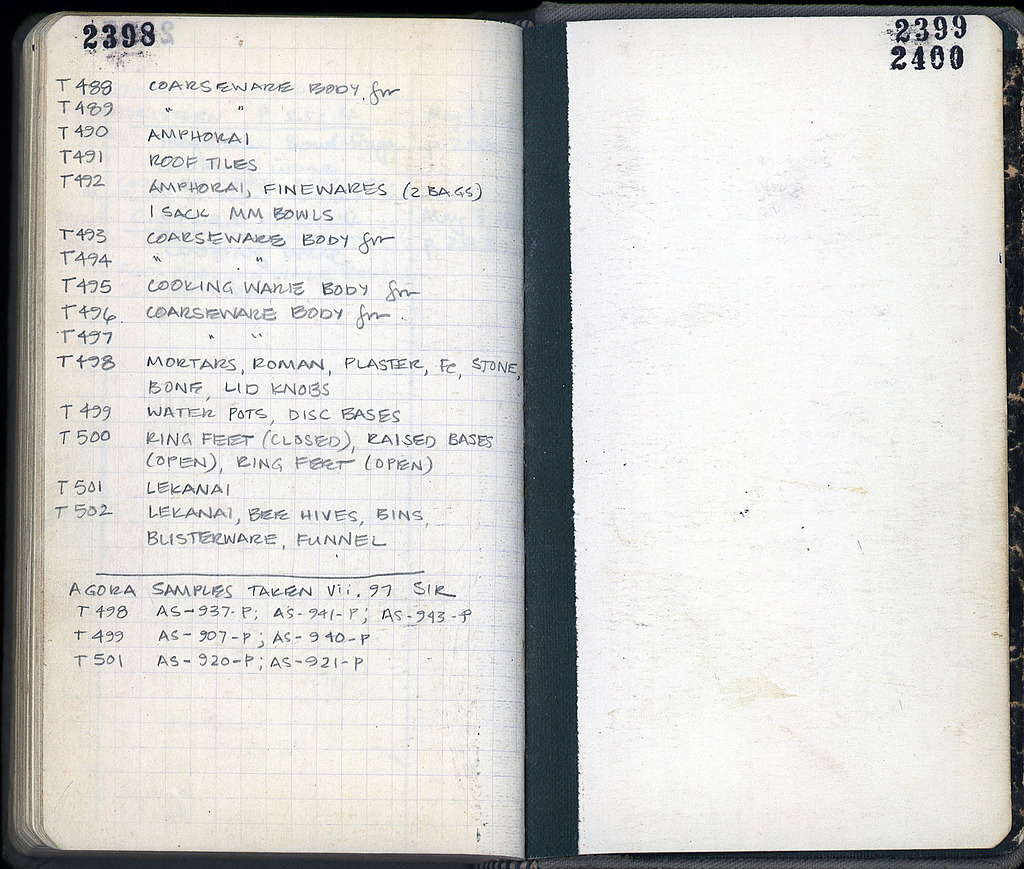 2398
T 488 COARSEWARE BODY fr
T 489 " "
T 490 AMPHORAI
T 491 ROOF TILES
T 492 AMPHORAI, FINEWARES (2 BAGS)
1 SACK MM BOWLS
T 493 COARSEWARE BODY fr
T 494 " "
T 495 COOKING WARE BODY fr
T 496 COARSEWARE BODY fr
T 497 " "
T 498 MORTARS, ROMAN, PLASTER, Fe, STONE,
BONE, LID KNOBS
T 499 WATER POTS, DISC BASES
T 500 RING FEET (CLOSED), RAISED BASES
(OPEN), RING FEET (OPEN)
T 501 LEKANAI
T 502 LEKANAI, BEE HIVES, BINS,
BLISTERWARE, FUNNEL
AGORA SAMPLES TAKEN Vii. 97 SIR
T 498 AS-937-P; AS-941-P; AS-943-P
T 499 AS-907-P; AS-940-P
T 501 AS-920-P; AS-921-P
2399
2400